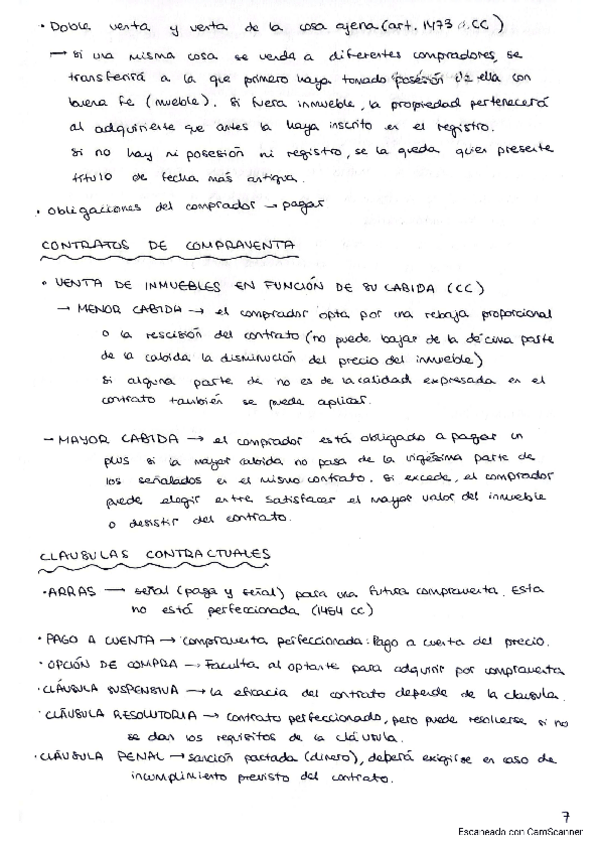 · Doble venta y venta de la cosa ajena (art. 1473 CC)
→ si una misma cosa se venda a diferentes compradores, se
transferirá a la que primero haya tomado posesión de ella con
buena fe (mueble). Si fuera inmueble, la propiedad pertenecerá
al adquiriente que antes la haya inscrito en el registro.
Si no hay ni posesión ni registro, se la queda quien presente
título de fecha más antigua.
· Obligaciones del comprador → pagar
CONTRATOS DE COMPRAVENTA
· VENTA DE INMUEBLES EN FUNCIÓN DE SU CABIDA (CC)
→ MENOR CABIDA → el comprador opta por una rebaja proporcional
o la rescisión del contrato (no puede bajar de la décima parte
de la cabida la disminución del precio del inmueble)
Si alguna parte de no es de la calidad expresada en el
contrato también se puede aplicar.
→ MAYOR CABIDA → el comprador está obligado a pagar un
plus si la mayor cabida no pasa de la vigésima parte de
los señalados en el mismo contrato. Si excede, el comprador
puede elegir entre satisfacer el mayor valor del inmueble
o desistir del contrato.
CLAUSULAS CONTRACTUALES
· ARRAS → señal (paga y señal) para una futura compraventa. Esta
no está perfeccionada (1454 CC)
· PAGO A CUENTA → compraventa perfeccionada. Pago a cuenta del precio.
· OPCIÓN DE COMPRA → Faculta al optante para adquirir por compraventa
· CLÁUSULA SUSPENSIVA → la eficacia del contrato depende de la clausula.
· CLÁUSULA RESOLUTORIA → contrato perfeccionado, pero puede resolverse si no
se dan los requisitos de la cláusula.
· CLÁUSULA PENAL → sanción pactada (dinero), deberá exigirse en caso de
incumplimiento previsto del contrato.
7
Escaneado con CamScanner